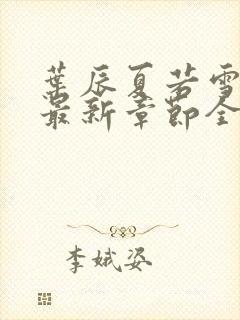 叶辰夏若雪
最新章节全
李娥姿